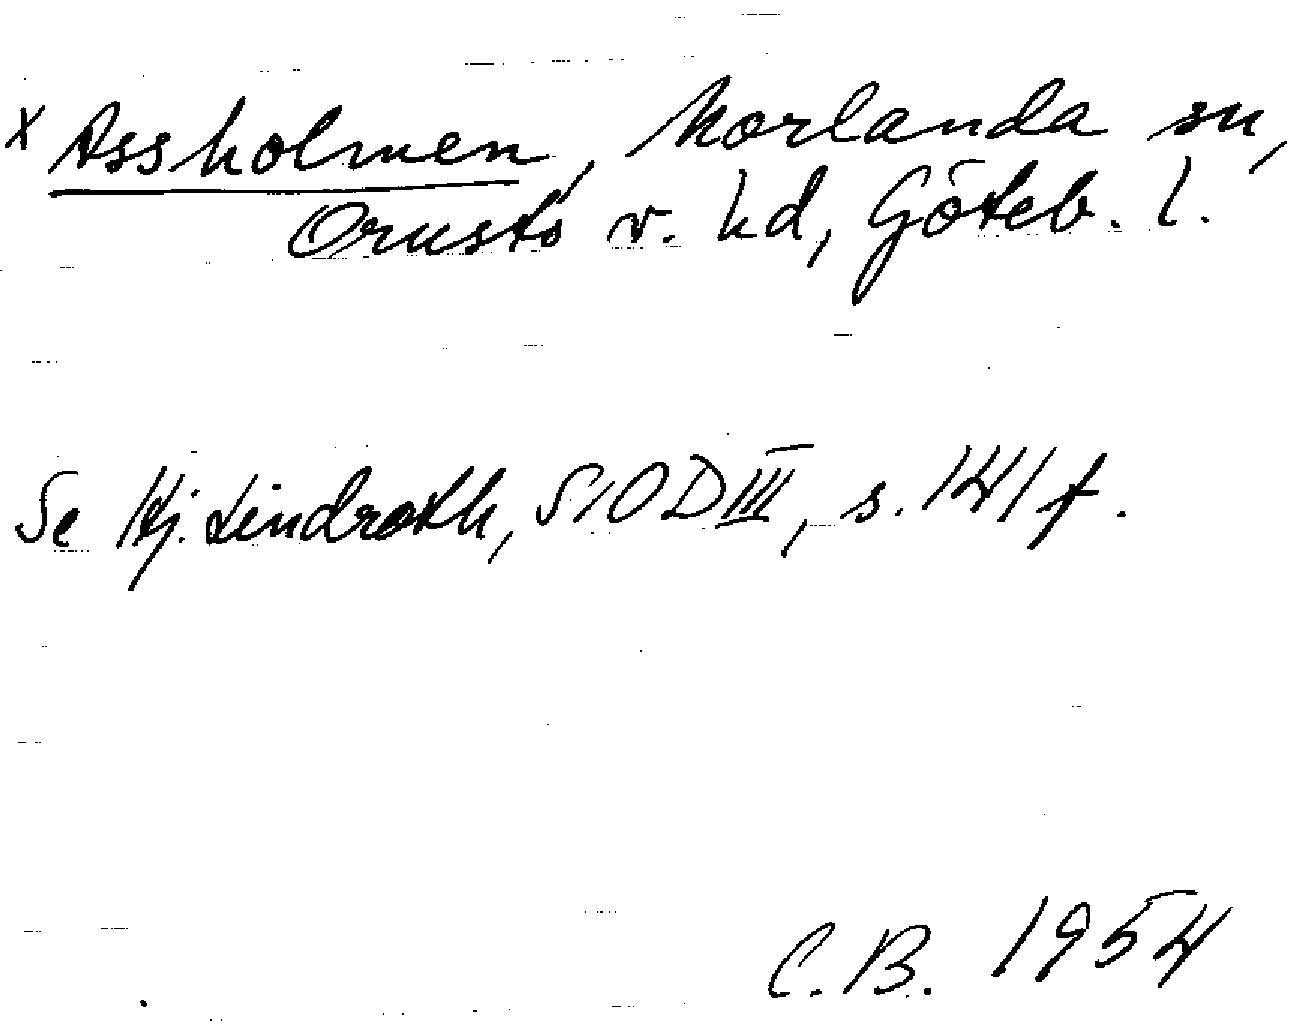 x Assholmen, Morlanda sn,
Orusts v. hd, Göteb. l.
Se Hj. Lindroth, SIOD III, s. 141 f.
C.B. 1954